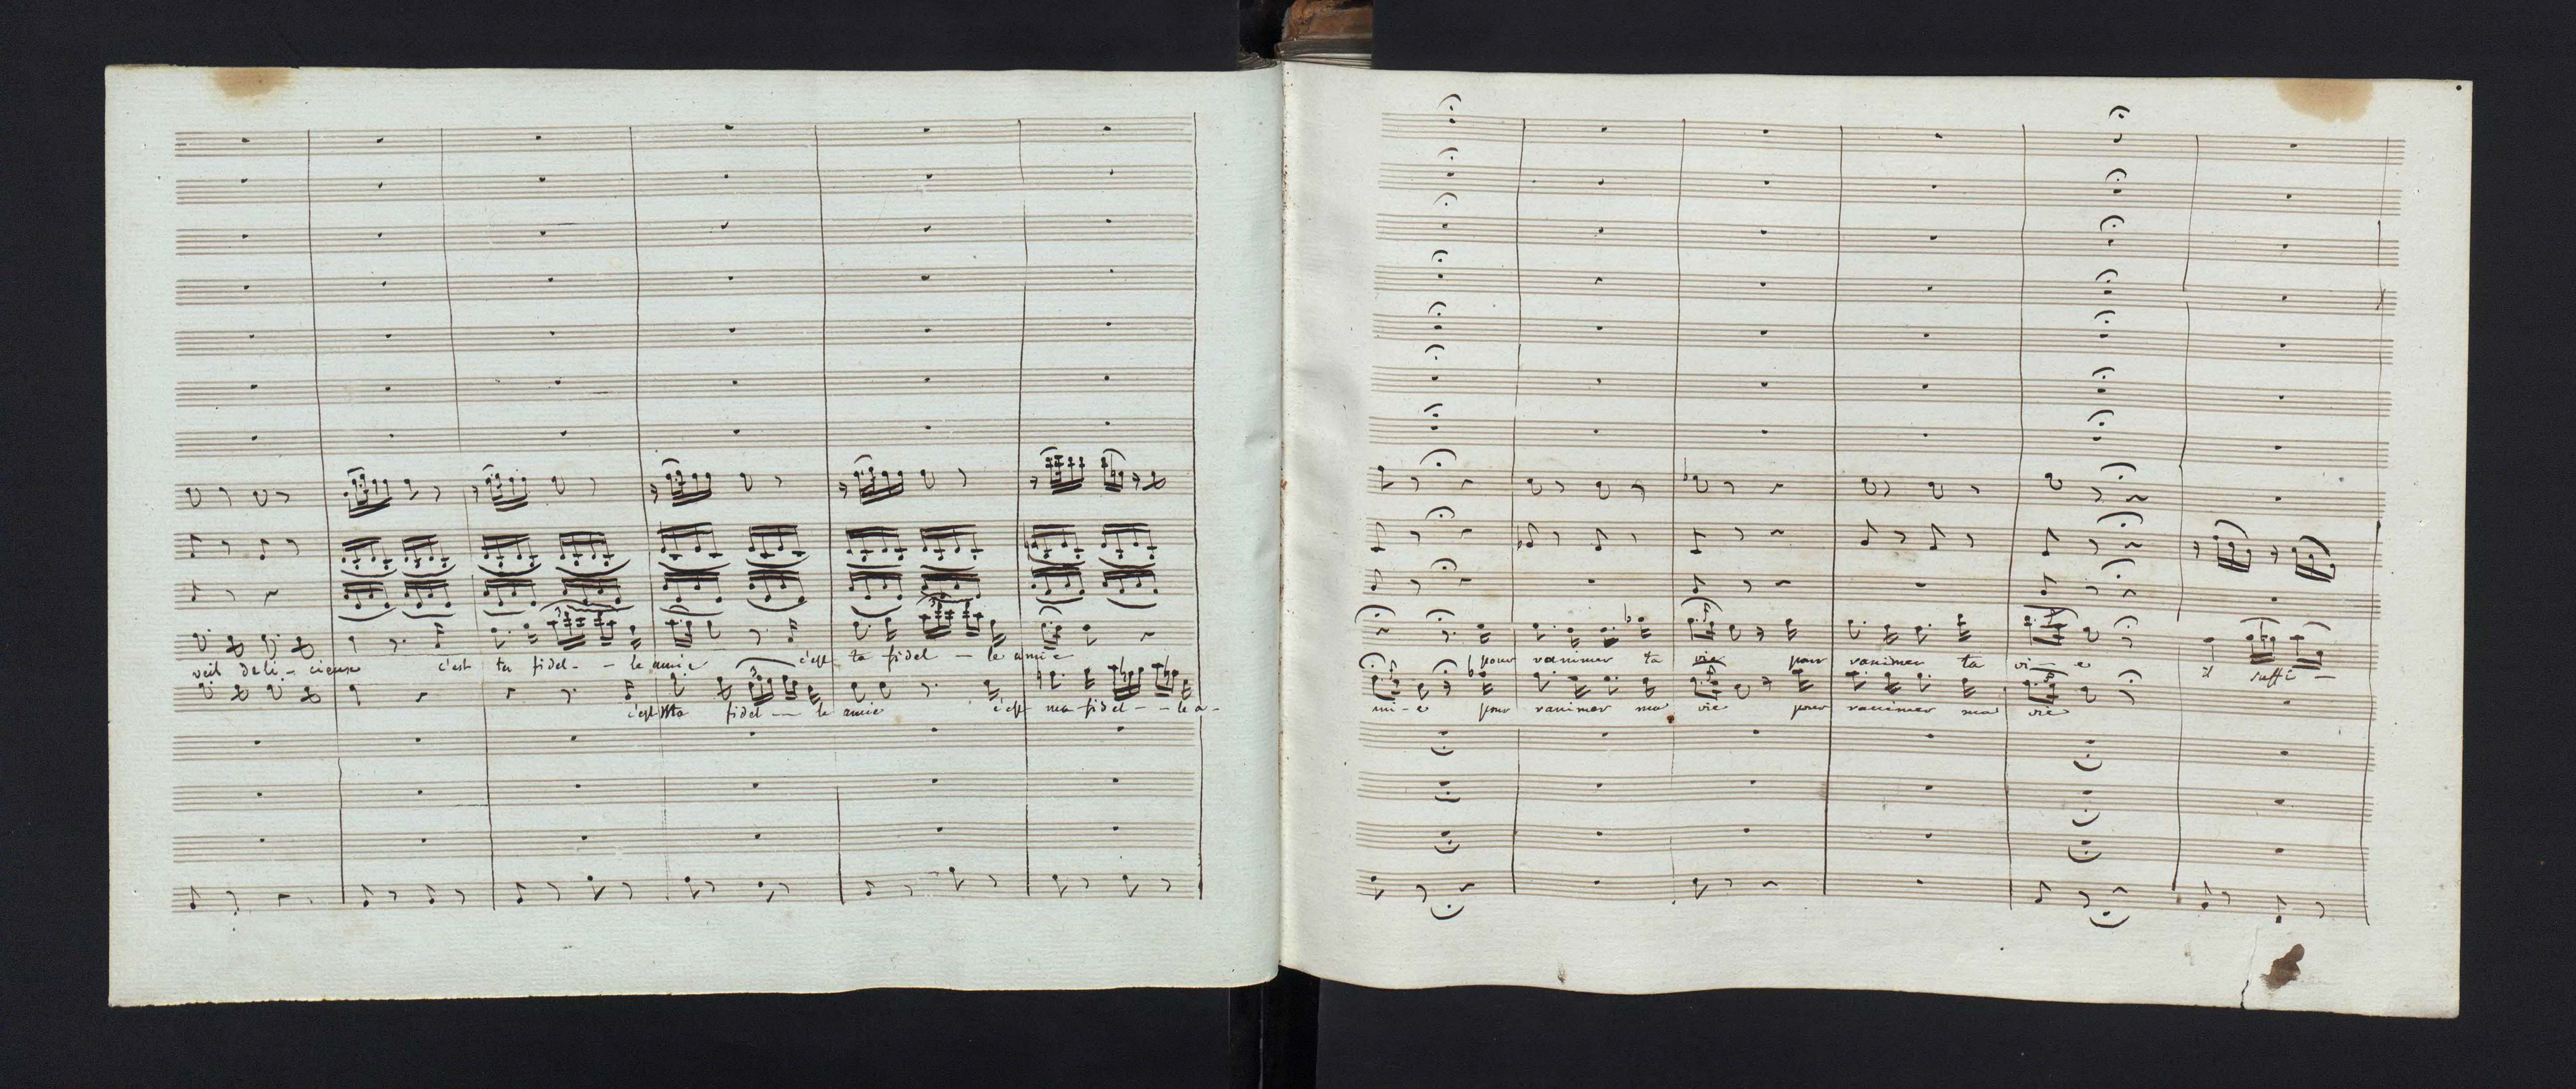 veil deli - cieux c'est ta fidel - - le amie c'est ta fidel - le amie
c'est Ma fidel - - le amie c'est ma fidel - - le a -
pour ranimer ta vie pour ranimer ta vi - e il suffi -
mi - e pour ranimer ma vie pour ranimer ma vie